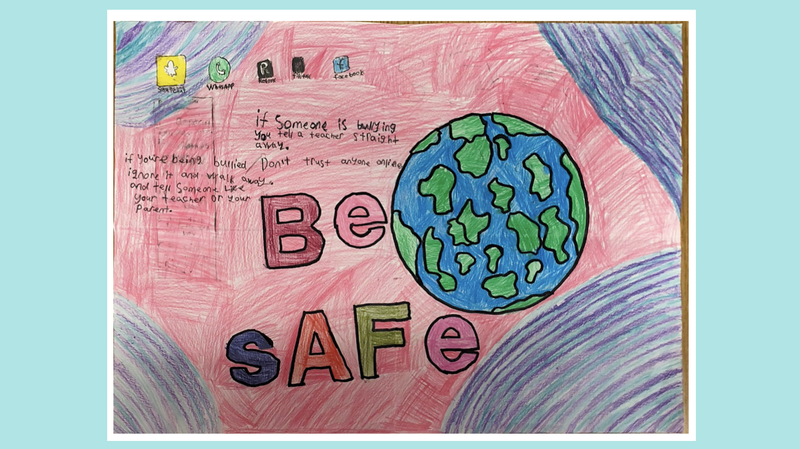 WhatsAPP
facebook
if Someone is bullying
you tell a teacher straight
away.
if you're being bullied
ignore it and walk away.
and tell Someone like
your teacher or your
Parent.
Don't trust anyone online
Be
SAFe